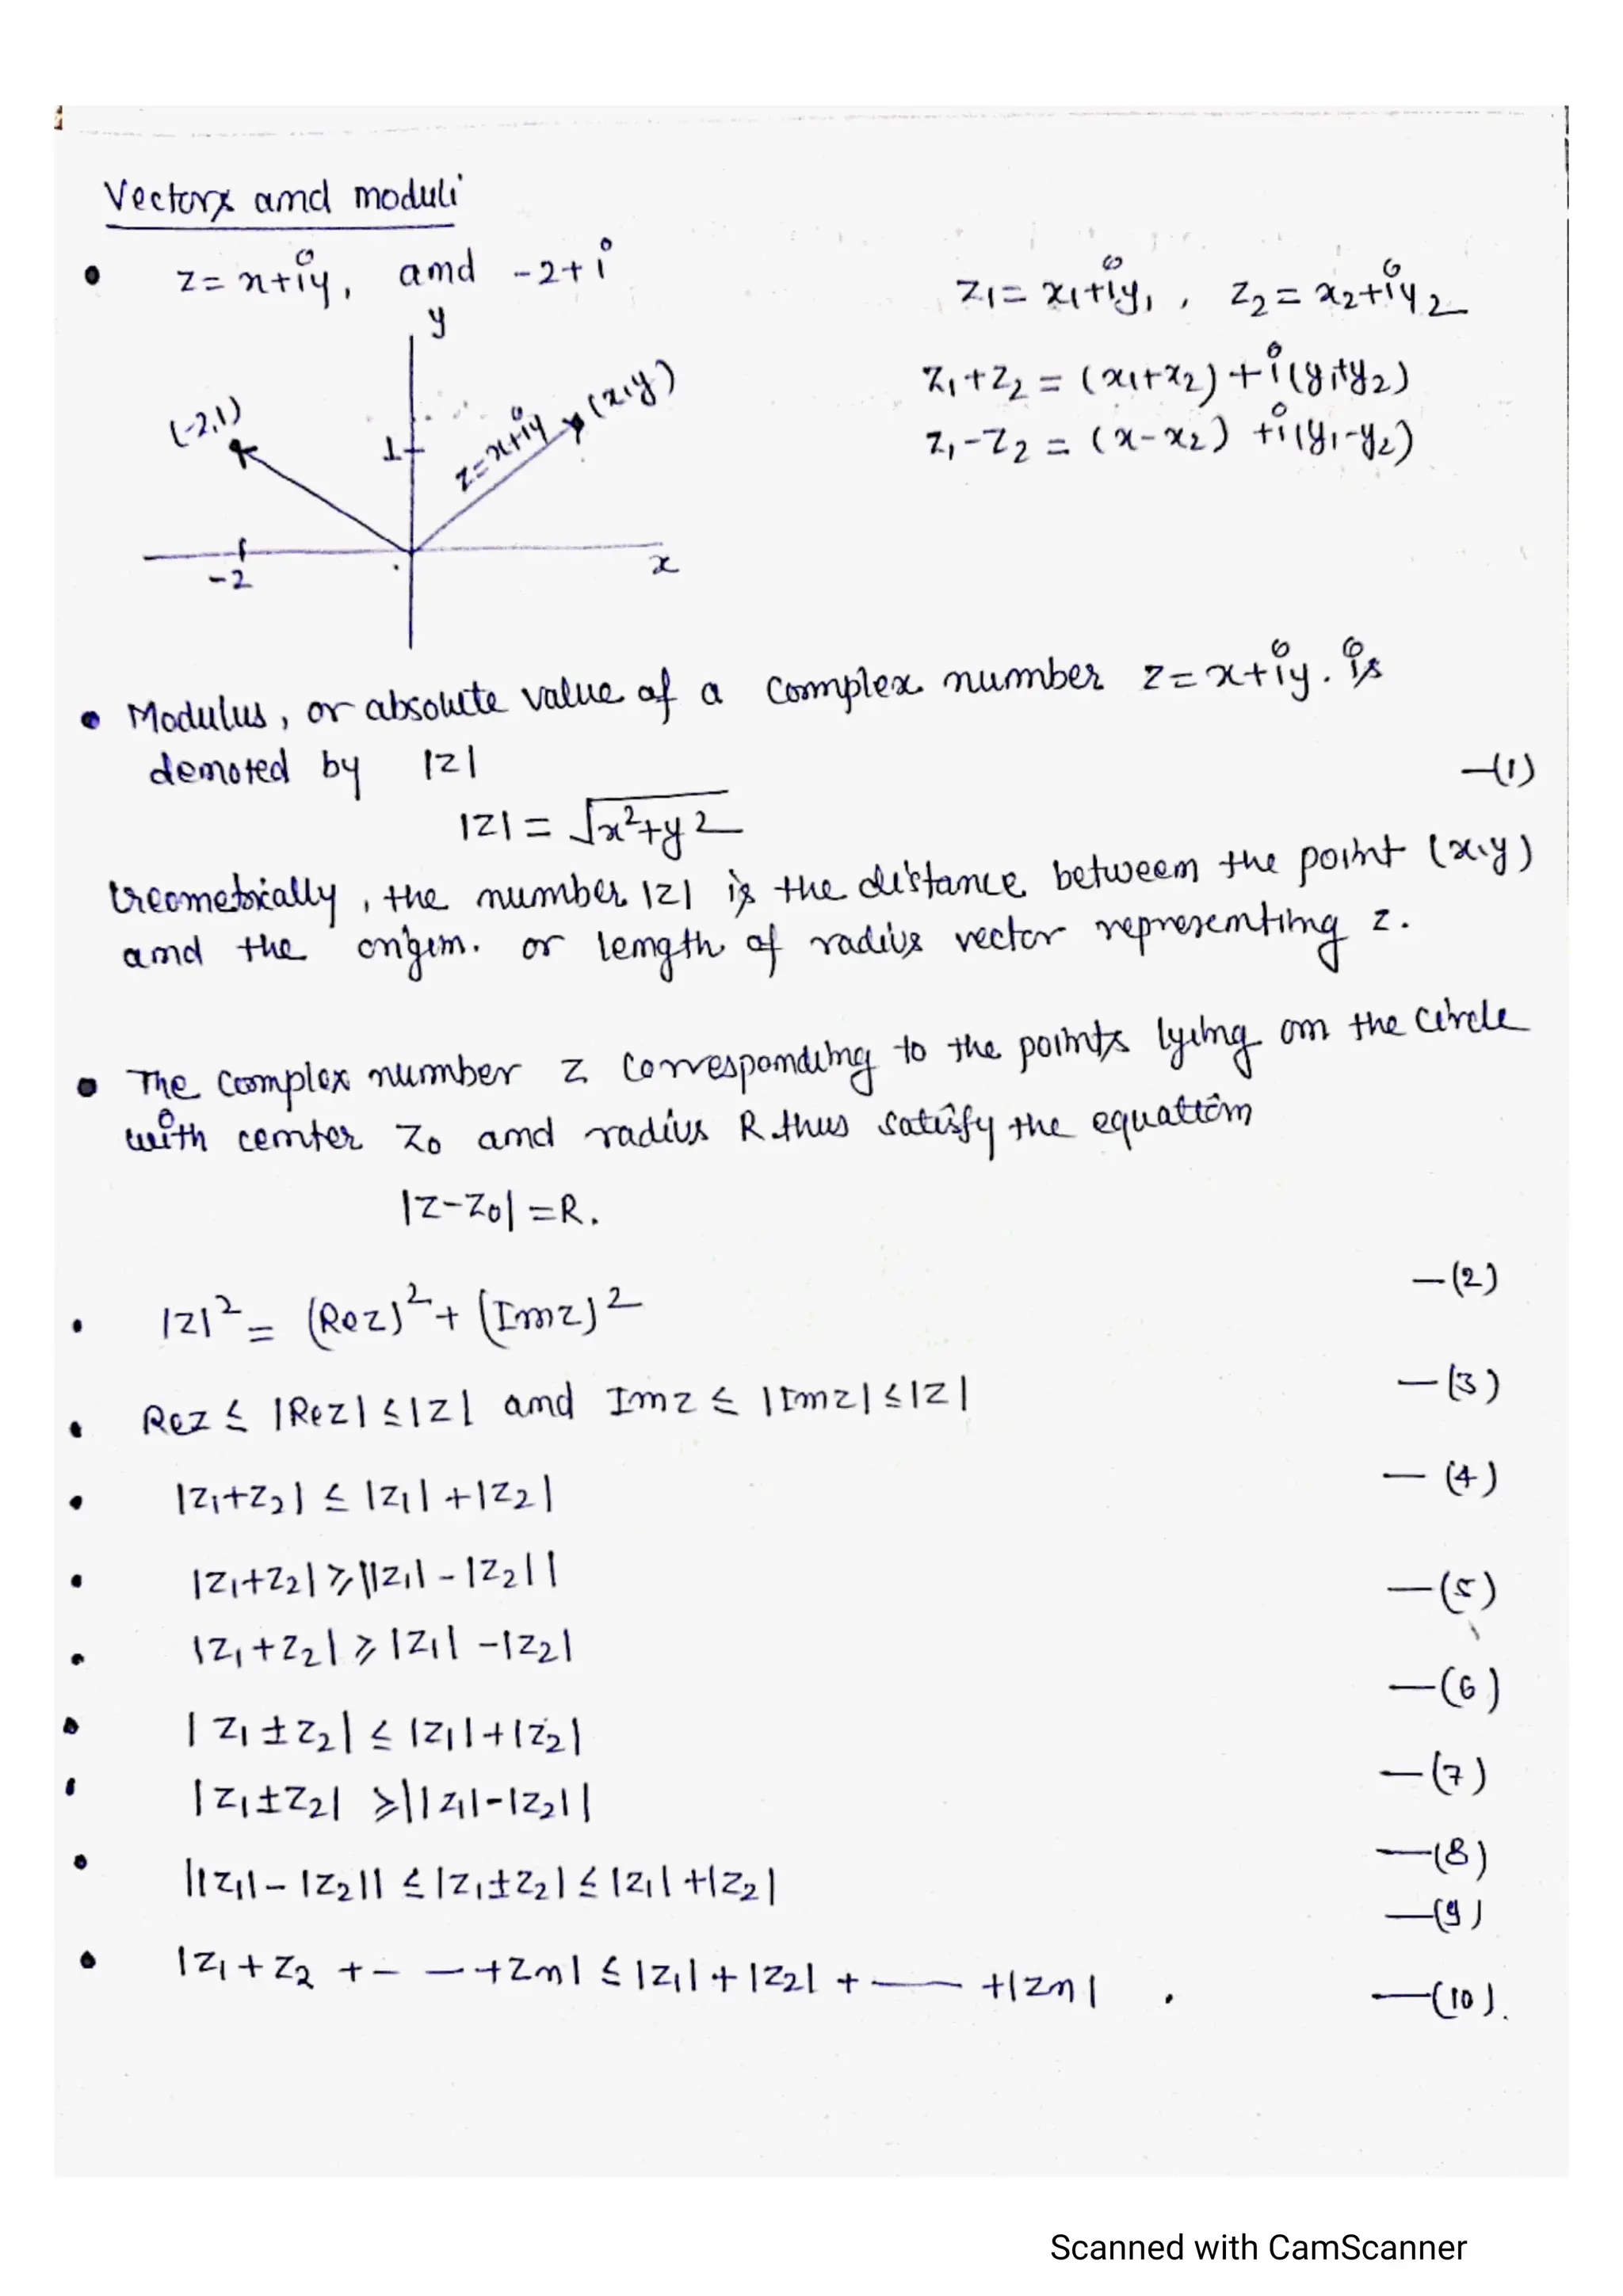 Vectors and moduli
• z = x+iy, and -2+i
z₁ = x₁+iy₁, z₂ = x₂+iy₂
z₁+z₂ = (x₁+x₂)+i(y₁+y₂)
z₁-z₂ = (x-x₂) +i(y₁-y₂)
y
(-2,1)
1
z=x+iy
(x,y)
-2
x
• Modulus, or absolute value of a complex number z=x+iy. is
denoted by |z| —(1)
|z| = √x²+y²
Geometrically, the number |z| is the distance between the point (x,y)
and the origin. or length of radius vector representing z.
• The complex number z corresponding to the points lying on the circle
with center z₀ and radius R thus satisfy the equation
|z-z₀| =R.
—(2)
• |z|² = (Rez)²+ (Imz)²
• Rez ≤ |Rez| ≤ |z| and Imz ≤ |Imz| ≤ |z| —(3)
• |z₁+z₂| ≤ |z₁| +|z₂| —(4)
• |z₁+z₂| ≥ ||z₁| - |z₂|| —(5)
• |z₁+z₂| ≥ |z₁| -|z₂|
—(6)
• |z₁±z₂| ≤ |z₁|+|z₂|
—(7)
• |z₁±z₂| ≥ ||z₁|-|z₂||
—(8)
• ||z₁| - |z₂|| ≤ |z₁±z₂| ≤ |z₁| +|z₂|
—(9)
• |z₁+z₂ +- —+zn| ≤ |z₁|+|z₂| + —— +|zn| . —(10).
Scanned with CamScanner